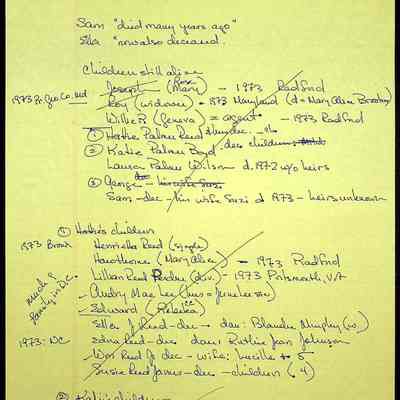 Sam "died many years ago"
Ella "now also deceased.
Children still alive
Joseph (Rose Mary) - 1973 Radford
1973 Pr. Geo. Co. Md Roy (widower) = 1973 Maryland (d = Mary Alice
Willie R (Geneva) = agent - 1973 Radford
① Hattie Palmer Reed
② Katie Palmer Boyd - dec children
Laura Palmer Wilson d. 1972 w/o heirs
③ George
Sam - dec / his wife Suzi d 1973 - heirs unknown
① Hattie's children
1973 Bronx Henrietta Reed (single)
Hawthorne (Mary Alice) - 1973 Radford
Lillian Reed (div.) - 1973 Portsmouth, VA
much of family in D.C. Audry Mae Lee (hus =
Edward (Rebecca)
Ella J Reed - dec - dau: Blanche Murphy (w.)
1973: DC Edna Reed - dec dau: Ruthie Jean Johnson
Wm Reed Jr dec - wife: Lucille + 5
Susie Reed James - dec - children (4)
② Katie's children